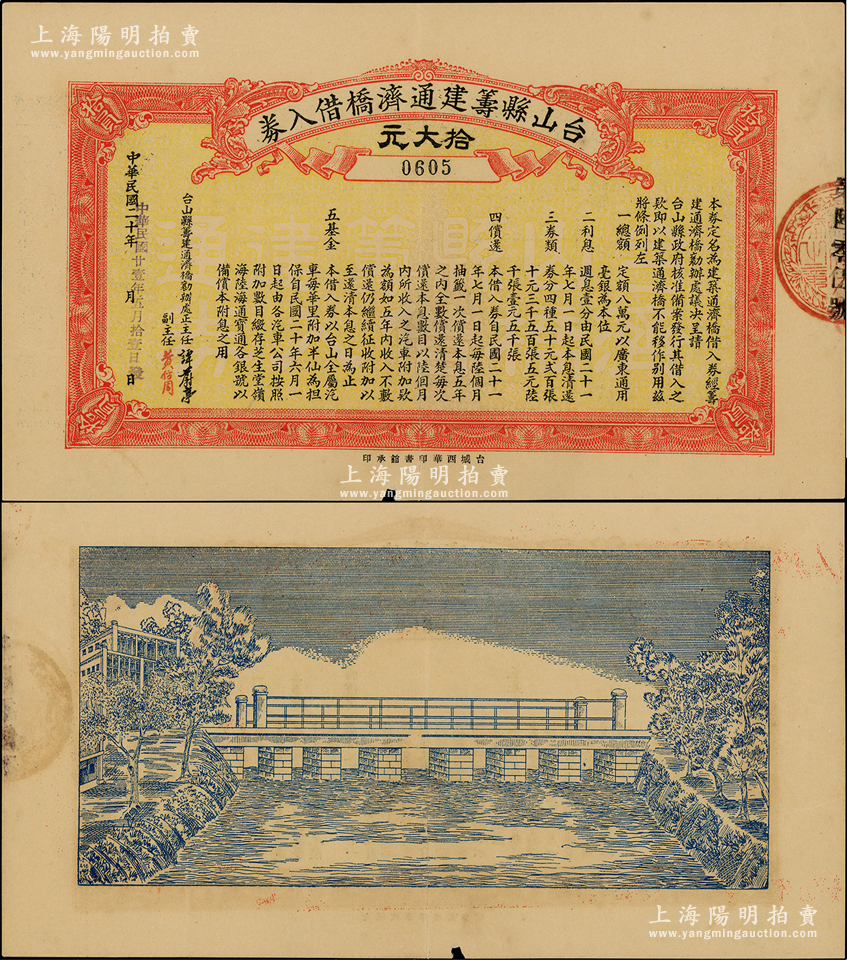 上海陽明拍賣
www.yangmingauction.com
台山縣籌建通濟橋借入券
拾大元
0605
拾
拾
本券定名為建築通濟橋借入券經籌
建通濟橋勸辦處議決呈請
台山縣政府核准備案發行其借入之
欵即以建築通濟橋不能移作別用茲
將條例列左
一總額 定額八萬元以廣東通用
毫銀為本位
二利息 週息壹分由民國二十一
年七月一日起本息清還
三券類 券分四種五十元弍百張
十元三千五百張五元陸
千張壹元五千張
四償還 本借入券自民國二十一
年七月一日起每陸個月
抽籤一次償還本息五年
之內全數償還清楚每次
償還本息數目以陸個月
內所收入之汽車附加欵
為額如五年內收入不敷
償還仍繼續征收附加以
至還清本息之日為止
五基金 本借入券以台山全屬汽
車每華里附加半仙為担
保自民國二十年六月一
日起由各汽車公司按照
附加數目繳存芝生堂嶺
海陸海通寶通各銀號以
備償本附息之用
台山縣籌建通濟橋勸辦處正主任
副主任
中華民國二十年 月 日
中華民國廿壹年 月拾壹日發
台城西華印書館承印
上海陽明拍賣
www.yangmingauction.com
上海陽明拍賣
www.yangmingauction.com